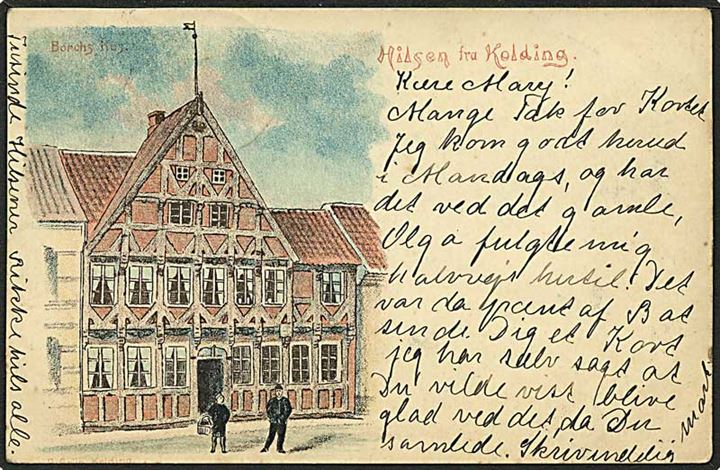 Borchs Hus.
Hilsen fra Kolding.
Kære Mary!
Mange Tak for Kortet
Jeg kom godt herud
i Mandags, og har
det ved det gamle,
Olga fulgte mig
halvvejs hertil. Det
var da pænt af B at
sende Dig et Kort
jeg har selv sagt at
Du vilde vist blive
glad ved det, da Du
samlede. Skriv endelig
snart
Hilsener
hils alle